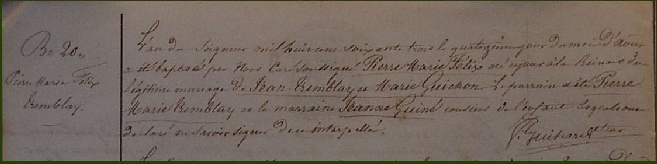 Be 20e
Pierre Marie Félix
Tremblay
L'an du Seigneur mil huit cent soixante trois le quatorzième jour du mois d'Août
a été baptisé par Nous Curé soussigné Pierre Marie Félix né à la Reine de
légitime mariage de Jean Tremblay et Marie Guichon Le parrain a été Pierre
Marie Tremblay et la marraine Jeanne Guiné cousins de l'enfant lesquels ont
déclaré ne savoir signer de ce interpellé.